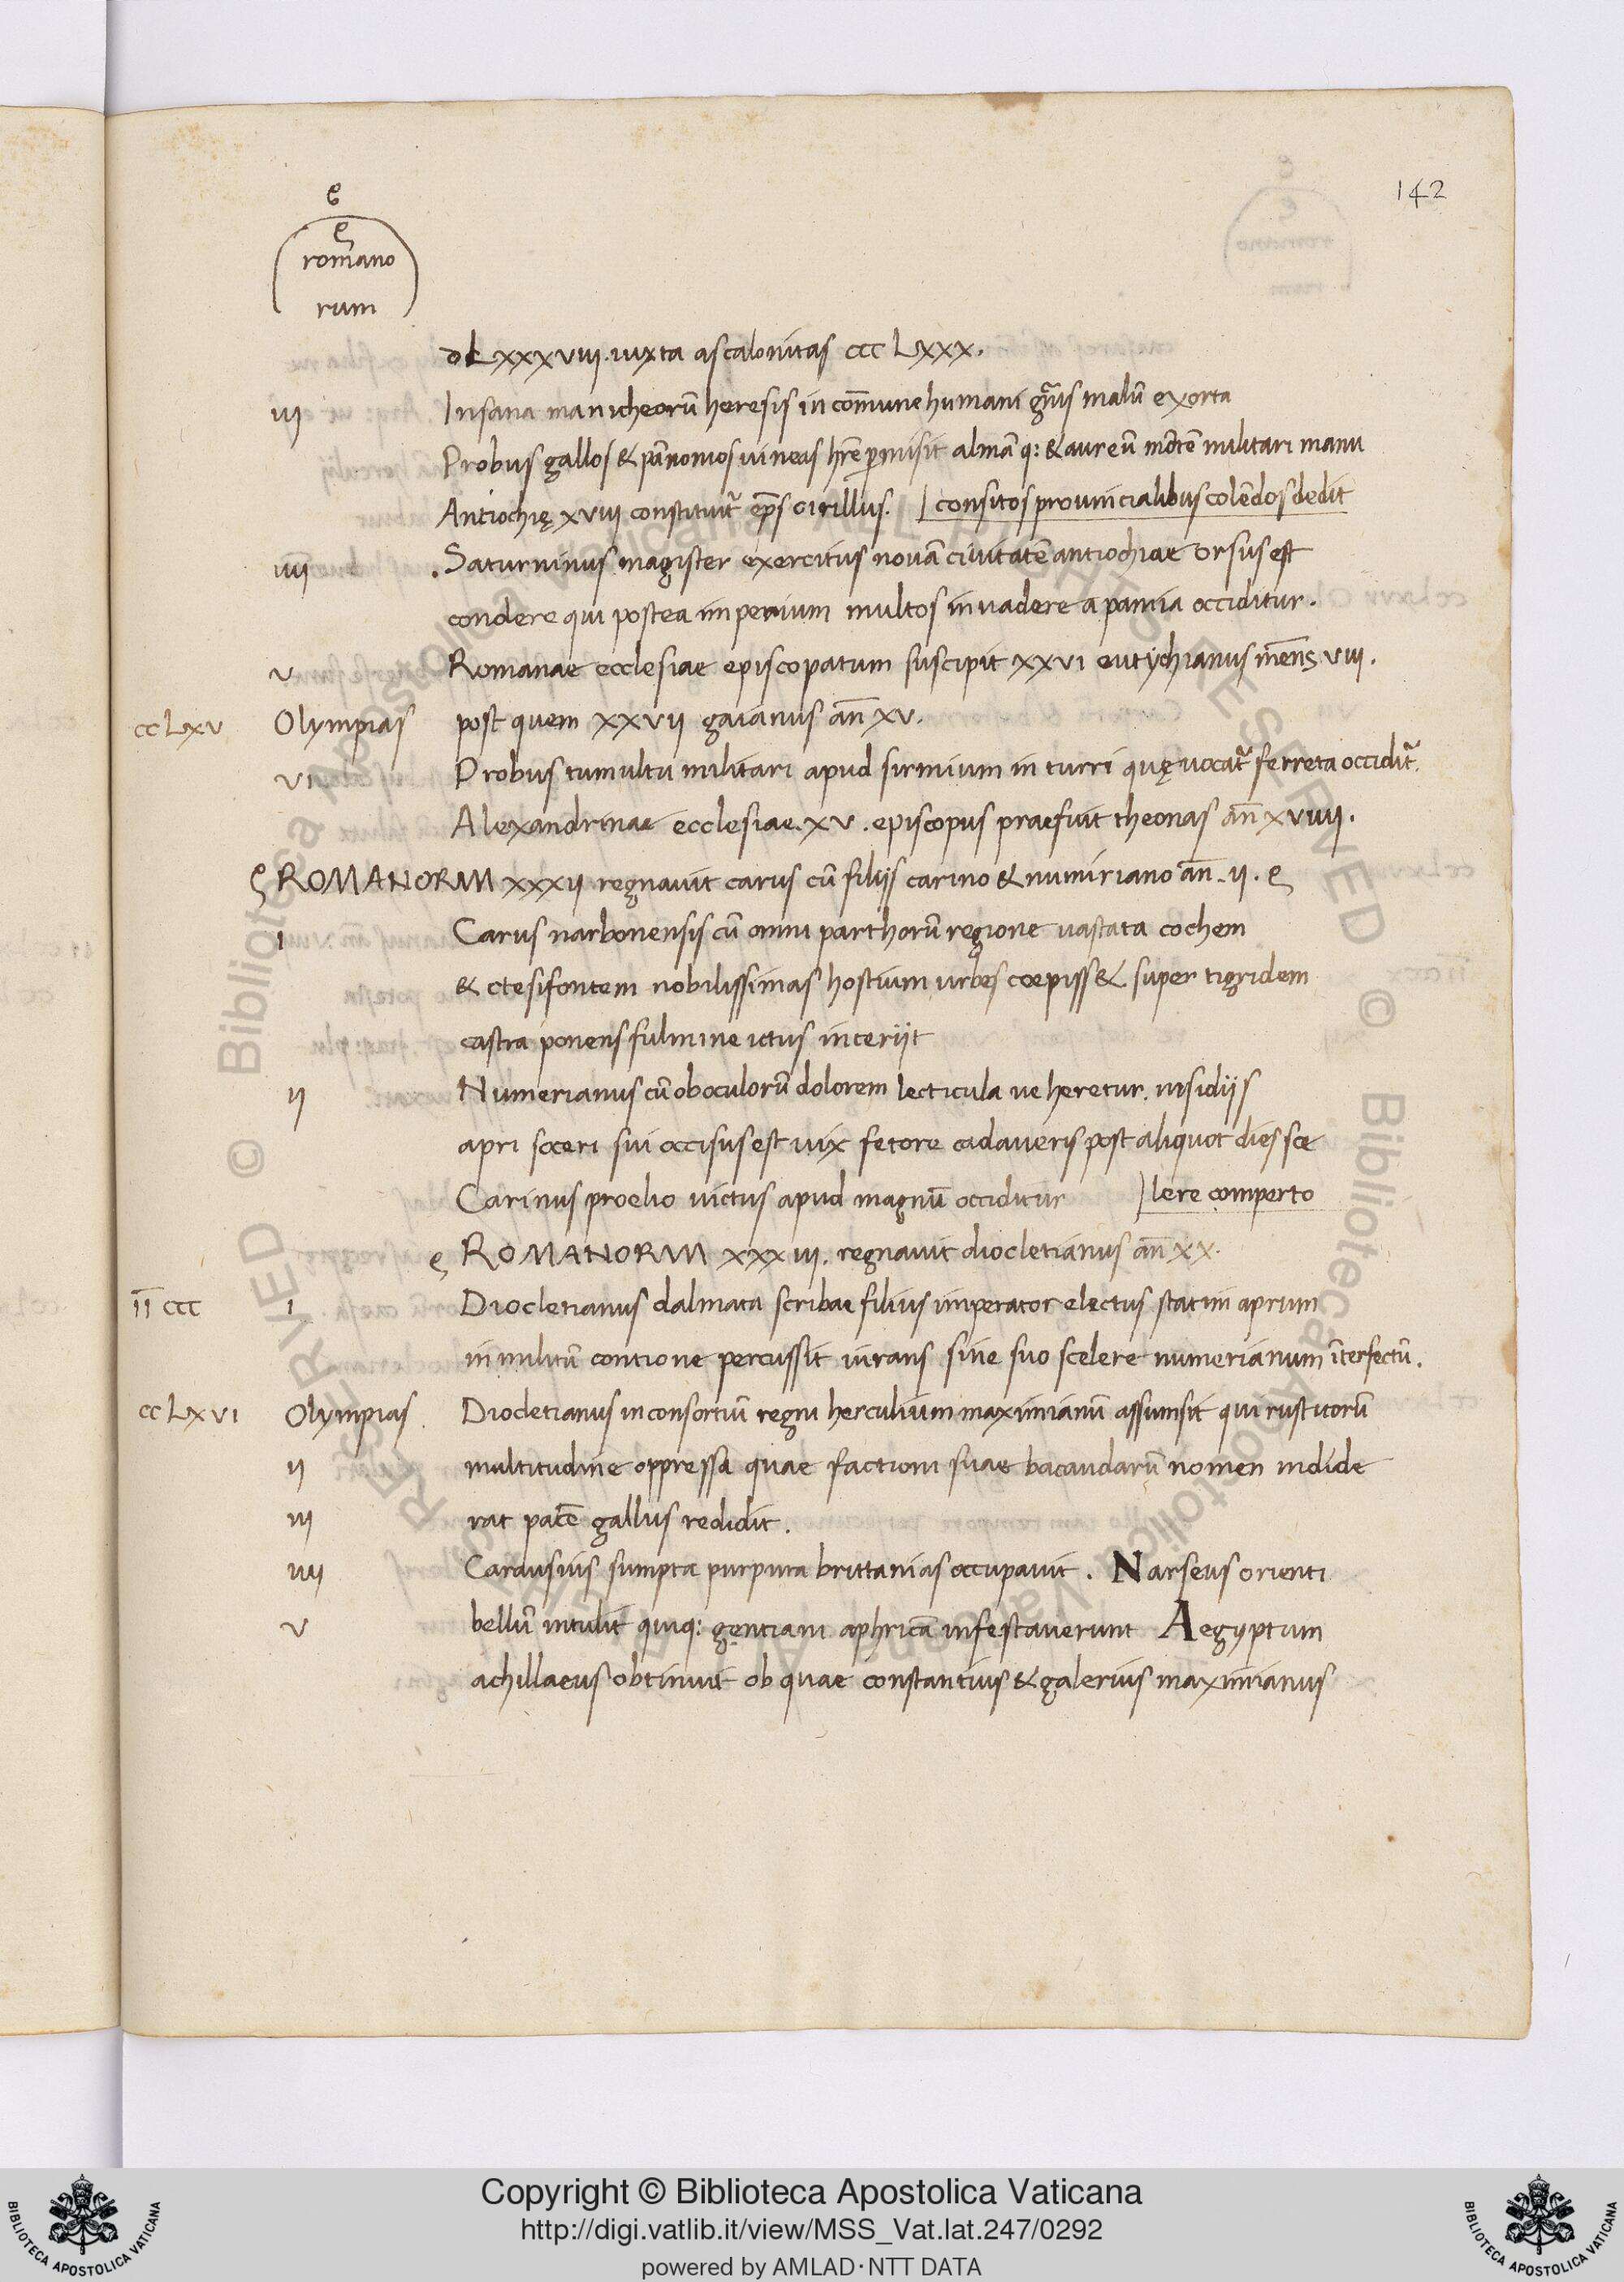 142
romano
rum
dcLxxxviii. iuxta ascalonitas ccc Lxxx.
iii Insana manicheorū heresis in com̄une humani gn̄is malū exorta
Probus gallos & pānonios uineas hr̄e p̱misit almā q: & aureū mōtē militari manu
Antiochię xviii constituit̃ ep̄s cirillus. consitos prouincialibus colēdos dedit
iiii .Saturninus magister exercitus nouā ciuitatē antiochiae orsus est
condere qui postea imperium multos inuadere apamia occiditur.
v Romanae ecclesiae episcopatum suscipit xxvi eutychianus mēns viii.
cc Lxv Olympias post quem xxvii gaianus an̄ xv.
vi Probus tumultu militari apud sirmium in turri quę uocat̃ ferreta occidit̃.
Alexandrinae ecclesiae. xv. episcopus praefuit theonas an̄ xviiii.
ROMANORUM xxxii regnauit carus cū filiis carino & numiriano an̄. ii.
i Carus narbonensis cū omni parthorū regione uastata cochem
& ctesifontem nobilissimas hostium urbes coepiss& super tigridem
castra ponens fulmine ictus interiit
ii Numerianus cū ob oculorū dolorem lecticula ueheretur. insidiis
apri soceri sui occisus est uix fetore cadaueris post aliquot dies sce
Carinus proelio uictus apud magnū occiditur lere comperto
ROMANORUM xxxiii. regnauit diocletianus an̄ xx.
II̅ ccc i Diocletianus dalmata scribae filius imperator electus statim aprum
in militū contione percussit iurans sine suo scelere numerianum īterfectū.
cc Lxvi Olympias Diocletianus in consortiū regni herculium maximianū assumsit qui rusticorū
ii multitudine oppressa quae factioni suae bacaudarū nomen indide
iii rat pacē gallus redidit.
iiii Carausius sumpta purpura brittanias occupauit. Narseus orienti
v bellū intulit quiq: gentiani aphricā infestauerunt Aegyptum
achillaeus obtinuit ob quae constantius & galerius maximianus
Copyright © Biblioteca Apostolica Vaticana
http://digi.vatlib.it/view/MSS_Vat.lat.247/0292
powered by AMLAD·NTT DATA